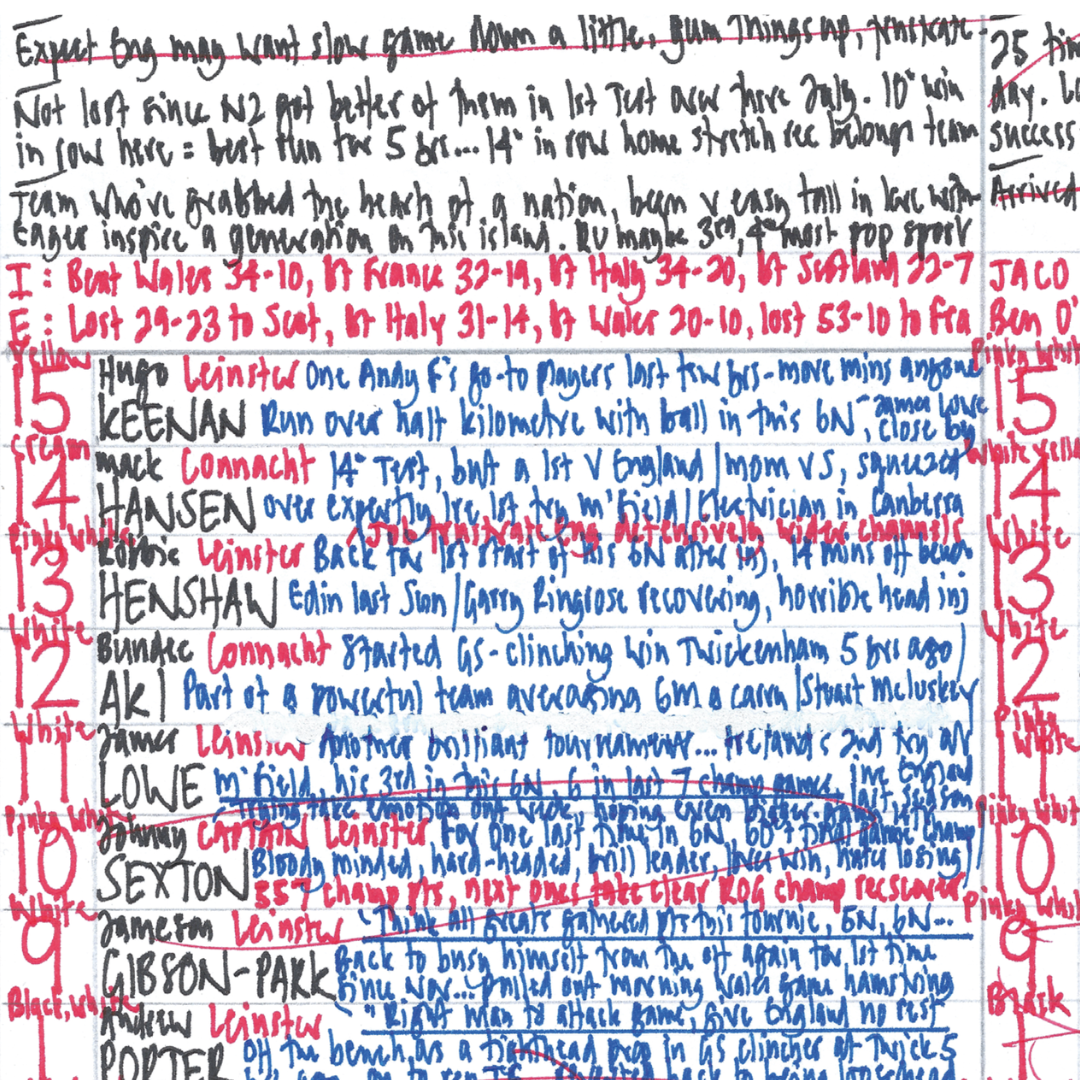 Expect Eng may want slow game down a little, gum things up, frustrate.
Not lost since NZ got better of them in 1st Test over there July. 10th win
in row here = best run for 5 yrs... 14th in row home stretch rec belongs team
Team who've grabbed the heart of a nation, been v easy fall in love with
Eager inspire a generation on this island. RU maybe 3rd, 4th most pop sport
I : Beat Wales 34-10, bt France 32-19, bt Italy 34-20, bt Scotland 22-7
E : Lost 29-23 to Scot, bt Italy 31-14, bt Wales 20-10, lost 53-10 to Fra
Yellow
15 Hugo Leinster One Andy F's go-to players last few yrs - more mins anyone
KEENAN Run over half kilometre with ball in this 6N, James Lowe close by
Cream
14 Mack Connacht 14th Test, but a 1st V England | mom V S, squeezed
HANSEN over expertly Ire 1st try m'field | Electrician in Canberra
Job frustrate Eng defensively wider channels
Pinky White
13 Robbie Leinster Back for 1st start of this 6N after inj, 14 mins off bench
HENSHAW Edin last Sun | Garry Ringrose recovering, horrible head inj
White
12 Bundee Connacht Started GS-clinching win Twickenham 5 yrs ago |
AKI Part of a powerful team averaging 6m a carry | Stuart McCluskey
White
11 James Leinster Another brilliant tournament... Ireland's 2nd try at
LOWE m'field, his 3rd in this 6N, 6 in last 7 champ games. Inc England last season
Trying free emotion out wide, hoping even bigger
Pinky White
10 Johnny CAPTAIN Leinster For one last time in 6N, 60th + final game champ
SEXTON Bloody minded, hard-headed, brill leader, loves win, hates losing
557 champ pts, next ones take clear ROG champ rec scorer
White
9 Jameson Leinster "Think all greats gathered pts this tournie, 5N, 6N...
GIBSON-PARK Back to busy himself from the off again for 1st time
since Nov... pulled out morning Wales game hamstring
"Right man to attack game, give England no rest
Black, white
1 Andrew Leinster
PORTER Off the bench as a tighthead prop in GS clincher at Twick 5
25 tim
day.
success
Arrived
JACO
Ben O'
Pinky Whit
15
White yello
14
White
13
White
12
Pinky White
11
Pinky Whit
10
Pinky Whit
9
Black
1